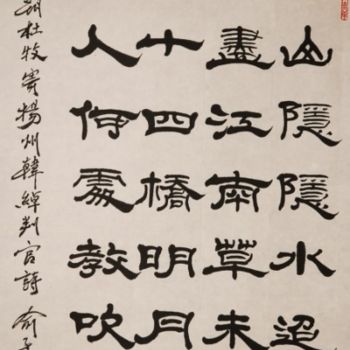 山隱隱水迢
盡江南草未
十四橋明月
人何處教吹
杜牧寄揚州韓綽判官詩 俞子